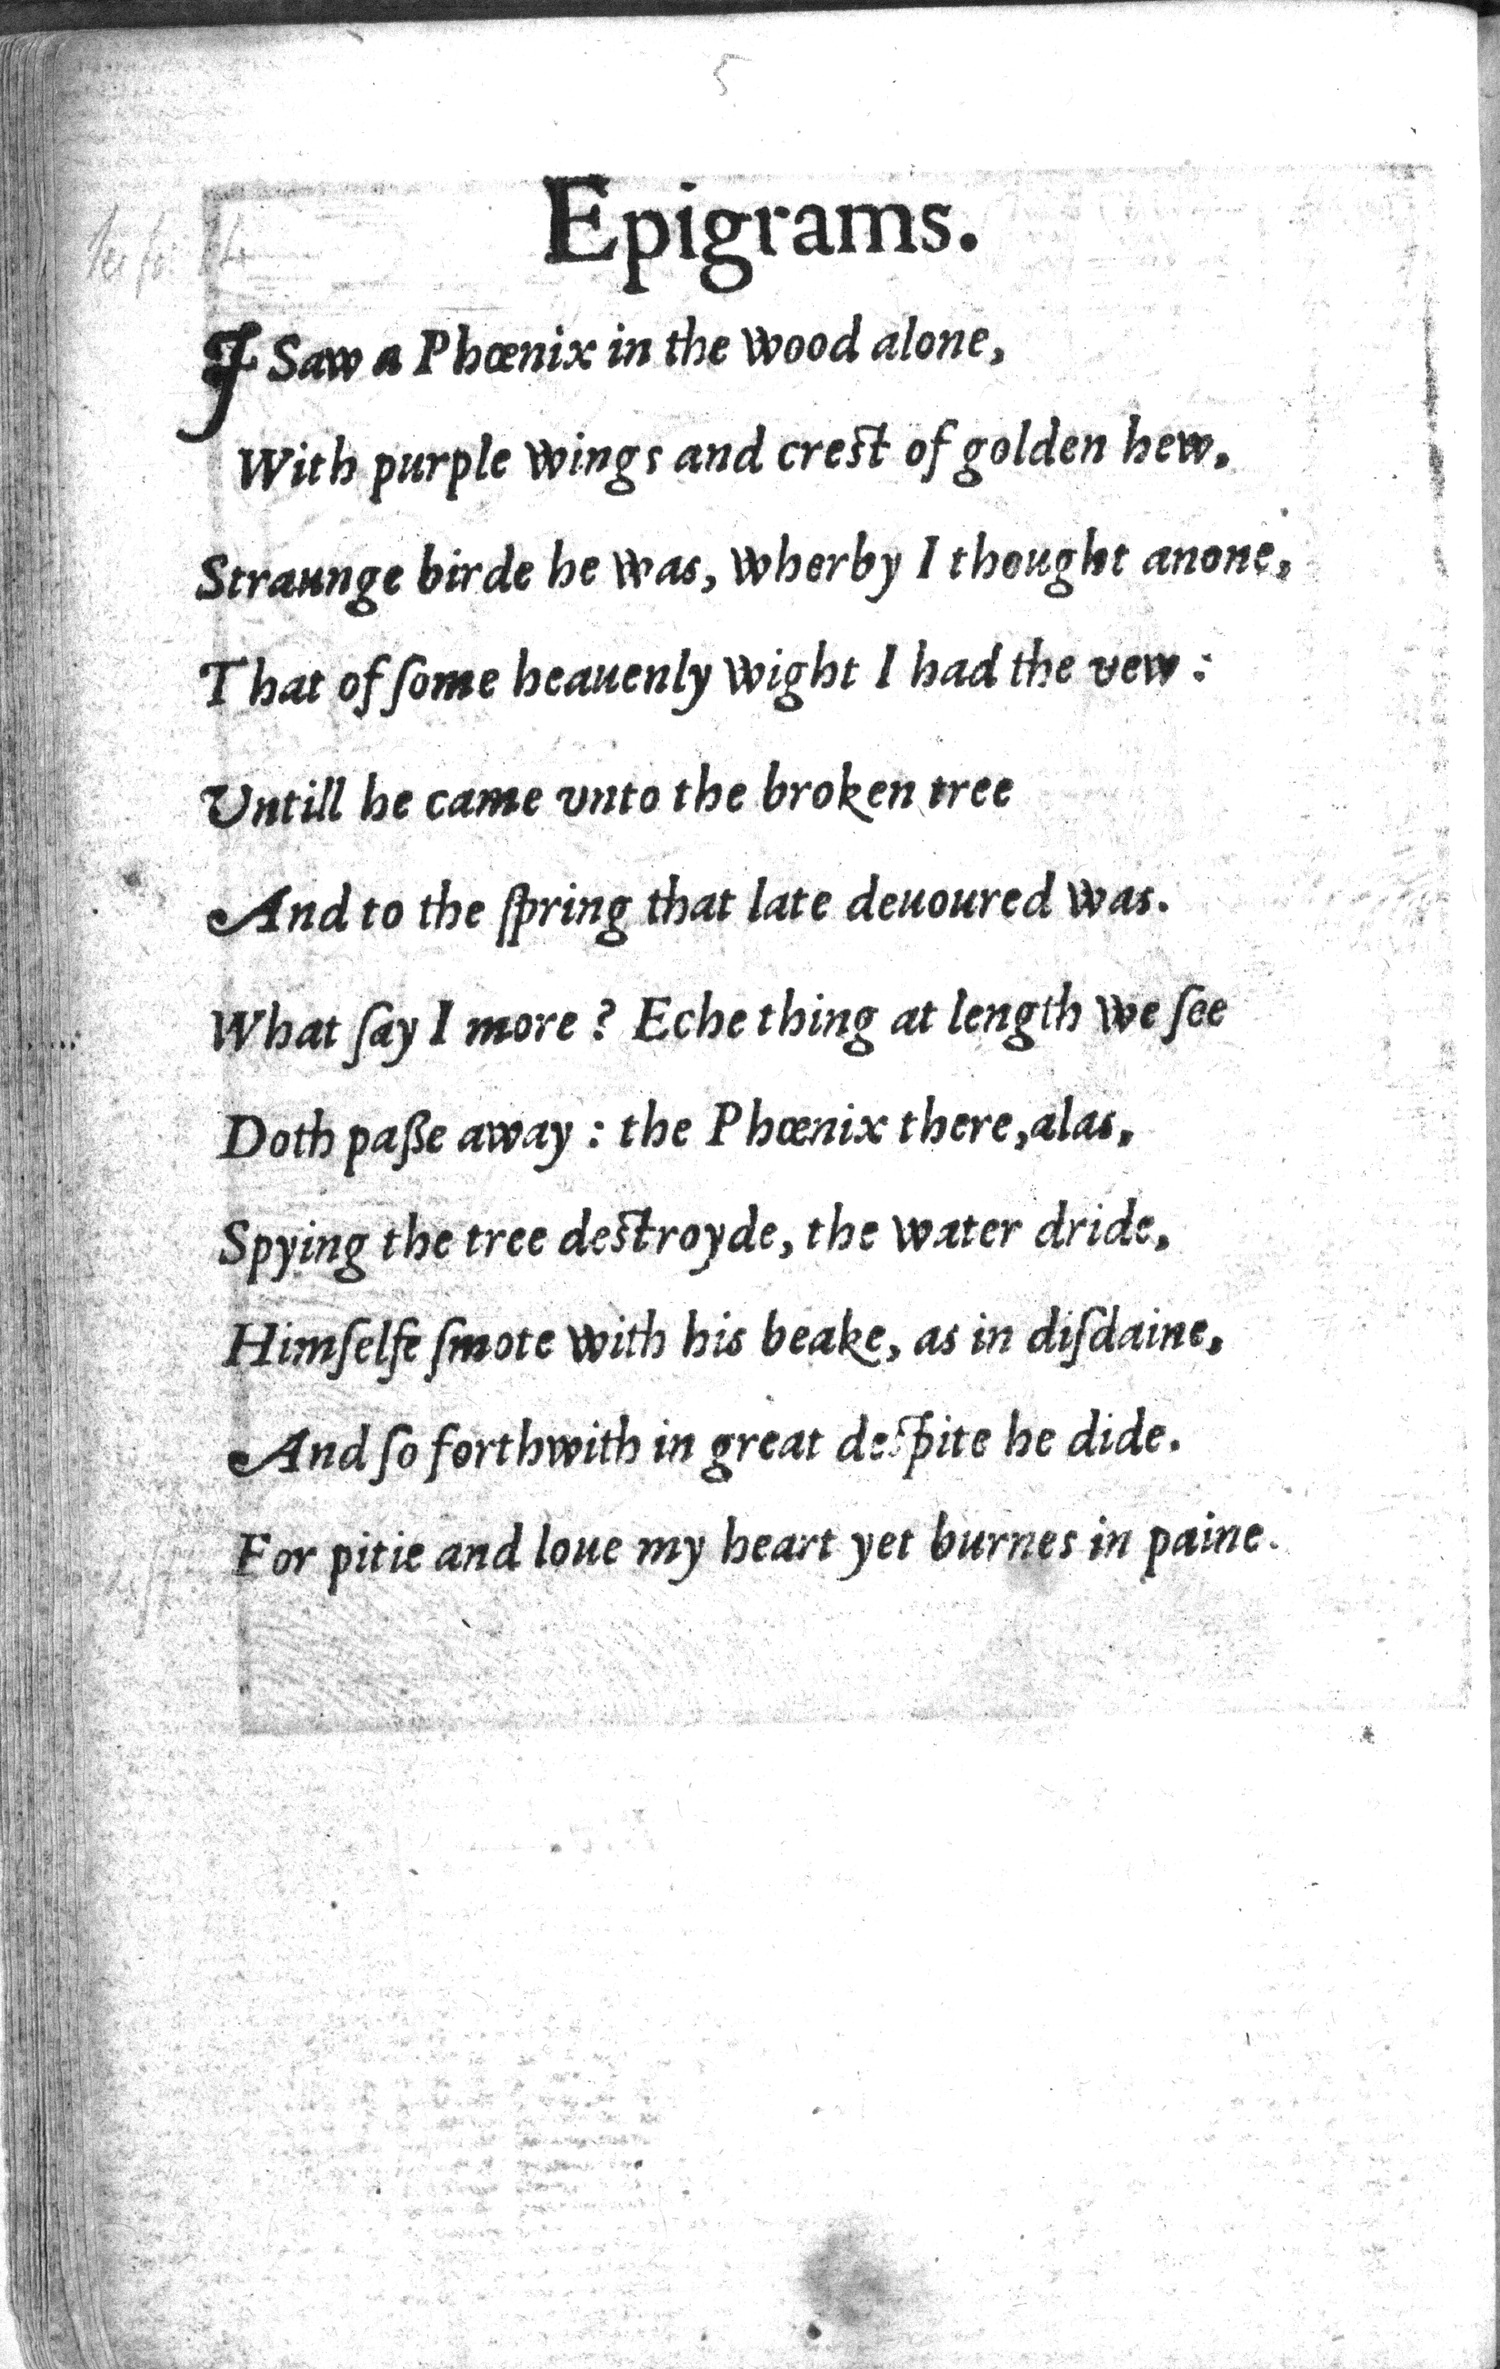 5
Epigrams.
I Saw a Phœnix in the wood alone,
With purple wings and crest of golden hew,
Straunge birde he was, wherby I thought anone,
That of ſome heauenly wight I had the vew :
Vntill he came vnto the broken tree
And to the ſpring that late deuoured was.
What ſay I more ? Eche thing at length we ſee
Doth paße away : the Phœnix there, alas,
Spying the tree destroyde, the water dride,
Himſelfe ſmote with his beake, as in diſdaine,
And ſo forthwith in great deſpite he dide.
For pitie and loue my heart yet burnes in paine.